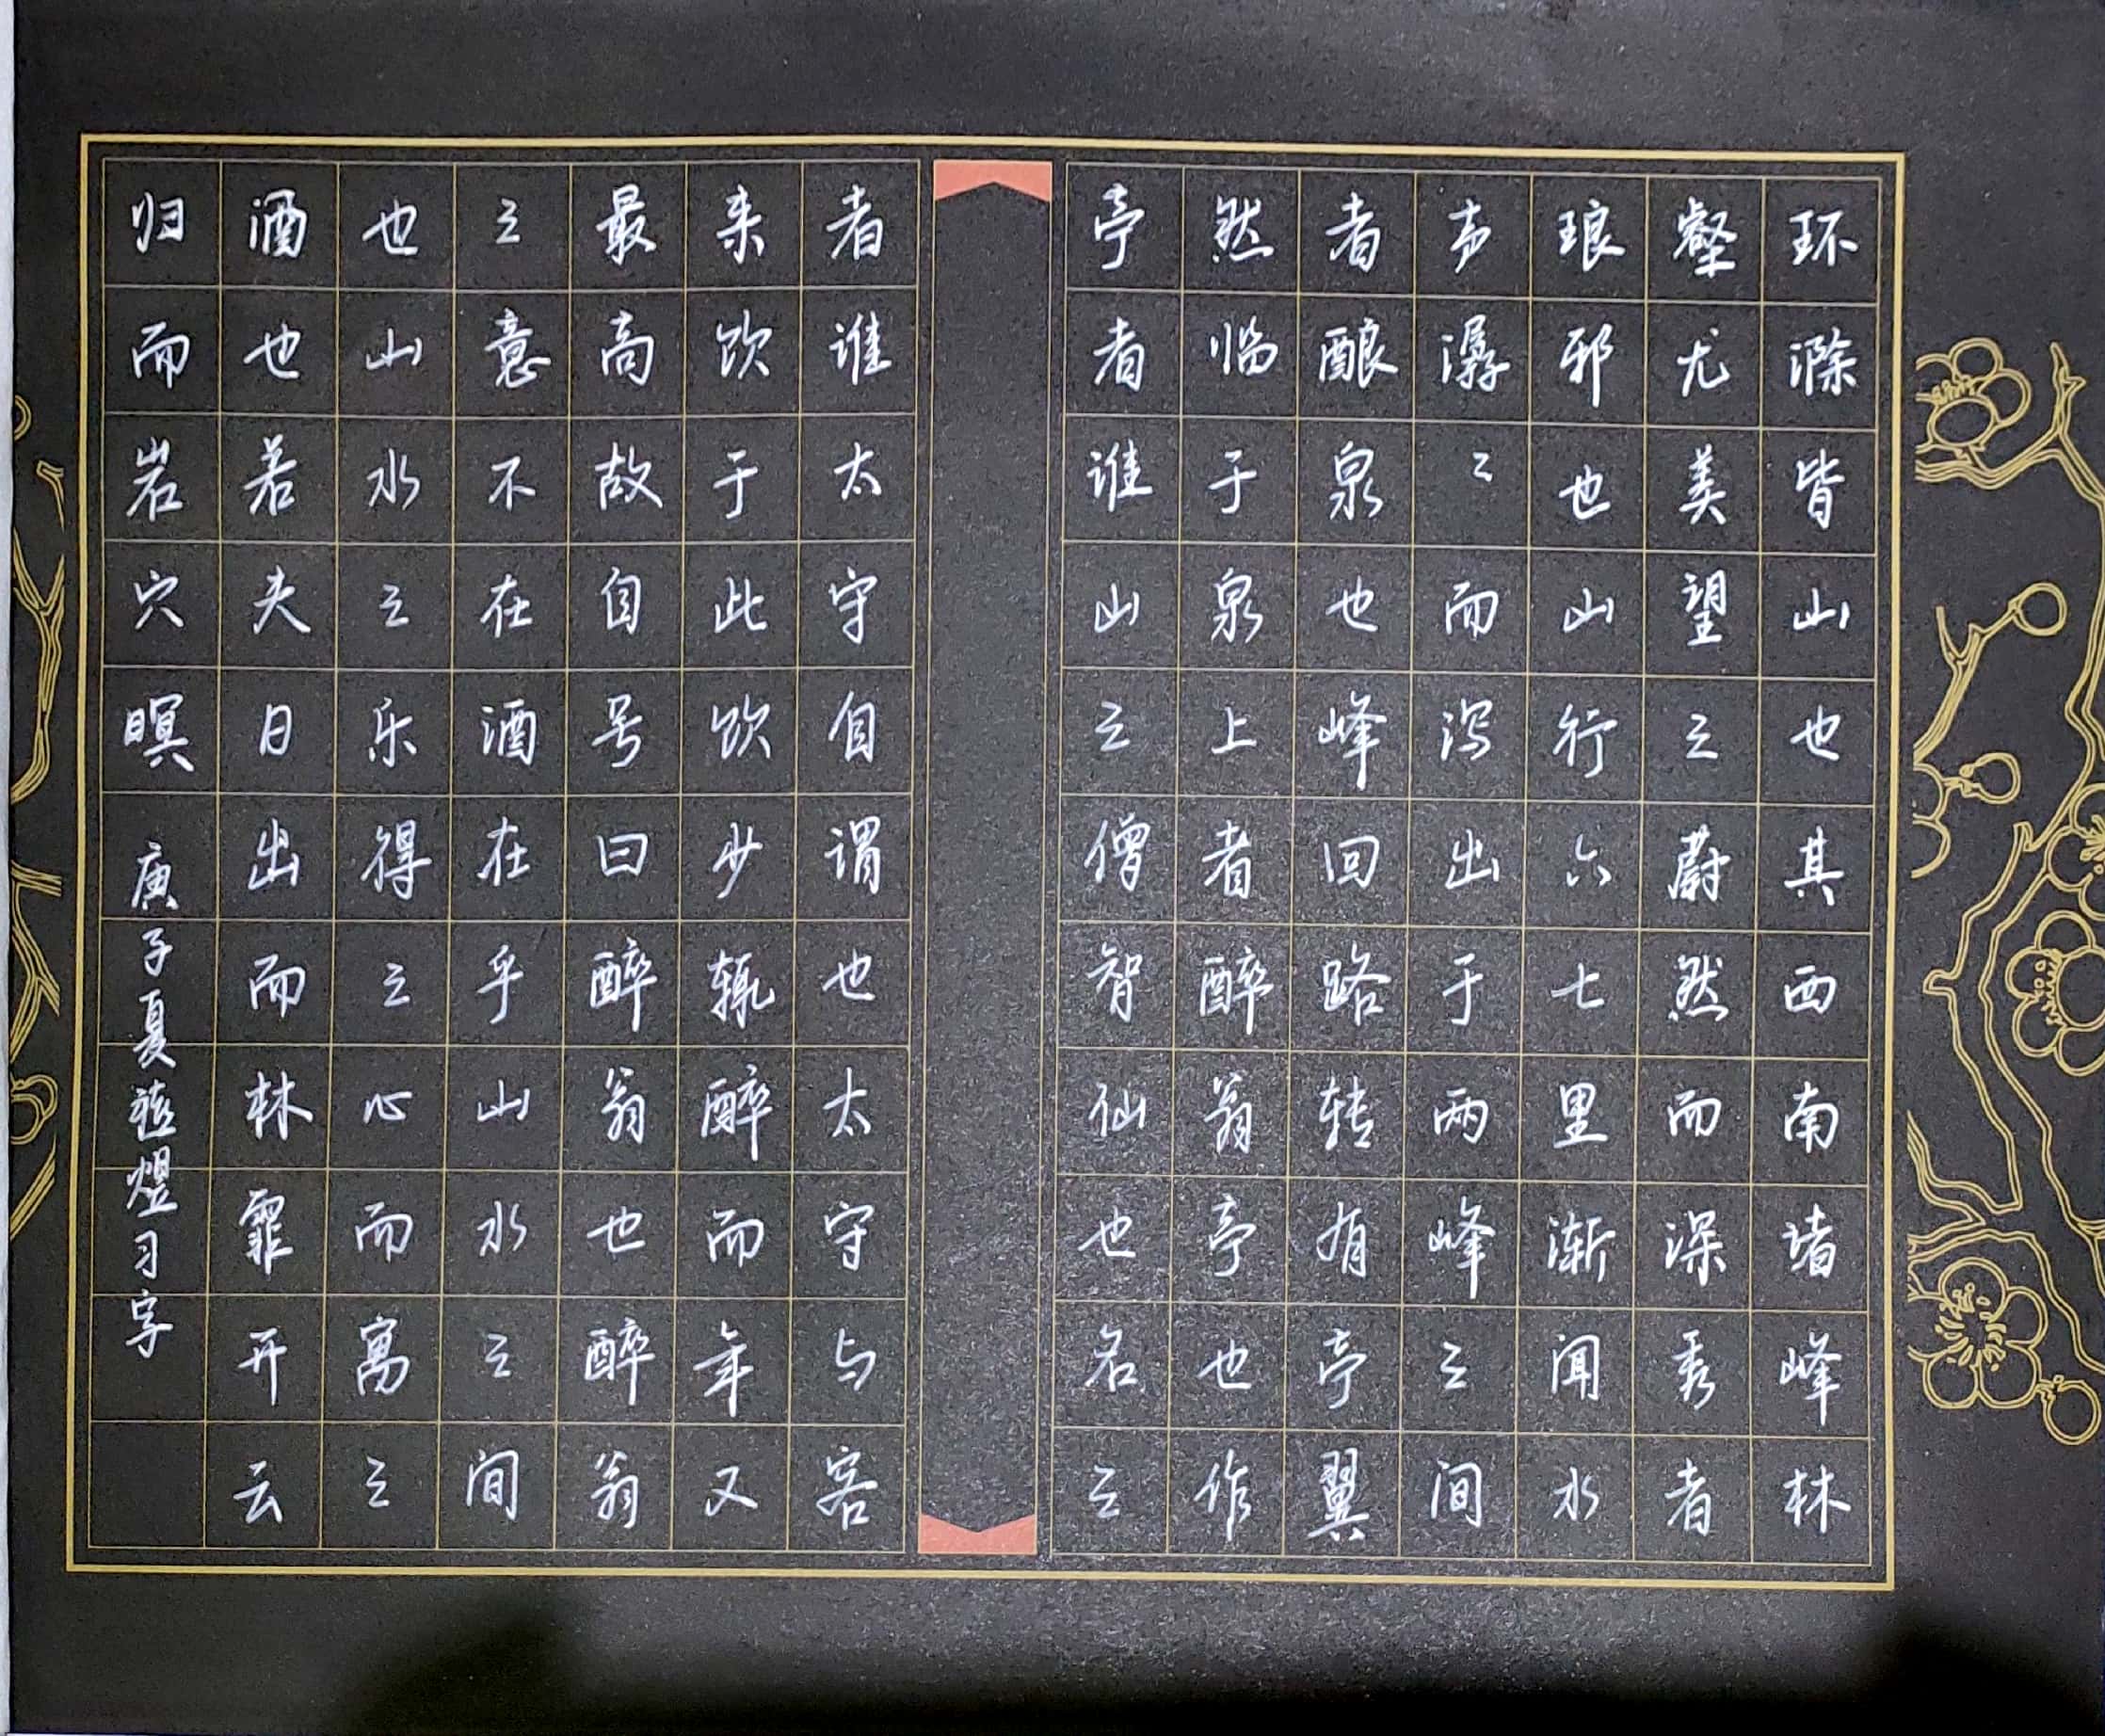 环滁皆山也其西南诸峰林
壑尤美望之蔚然而深秀者
琅邪也山行六七里渐闻水
声潺〻而泻出于两峰之间
者酿泉也峰回路转有亭翼
然临于泉上者醉翁亭也作
亭者谁山之僧智仙也名之
者谁太守自谓也太守与客
来饮于此饮少辄醉而年又
最高故自号曰醉翁也醉翁
之意不在酒在乎山水之间
也山水之乐得之心而寓之
酒也若夫日出而林霏开云
归而岩穴暝 庚子夏煜习字